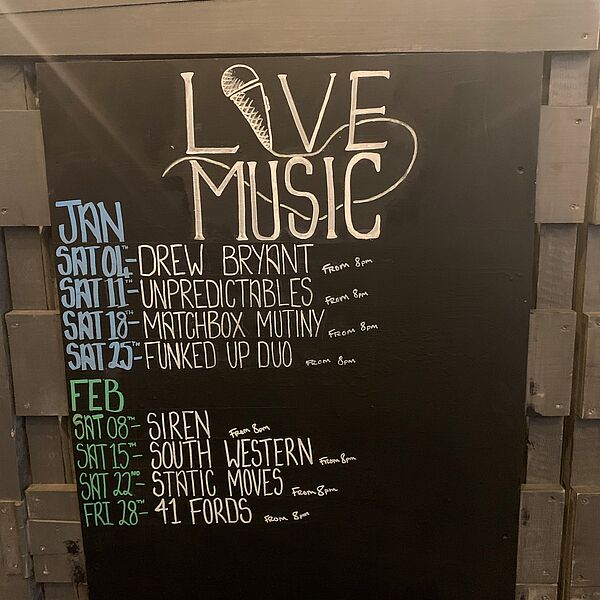 LIVE
MUSIC
JAN
SAT 04TH- DREW BRYANT FROM 8pm
SAT 11TH- UNPREDICTABLES FROM 8pm
SAT 18TH- MATCHBOX MUTINY FROM 8pm
SAT 25TH- FUNKED UP DUO FROM 8pm
FEB
SAT 08TH- SIREN FROM 8pm
SAT 15TH- SOUTH WESTERN FROM 8pm
SAT 22ND- STATIC MOVES FROM 8pm
FRI 28TH- 41 FORDS FROM 8pm